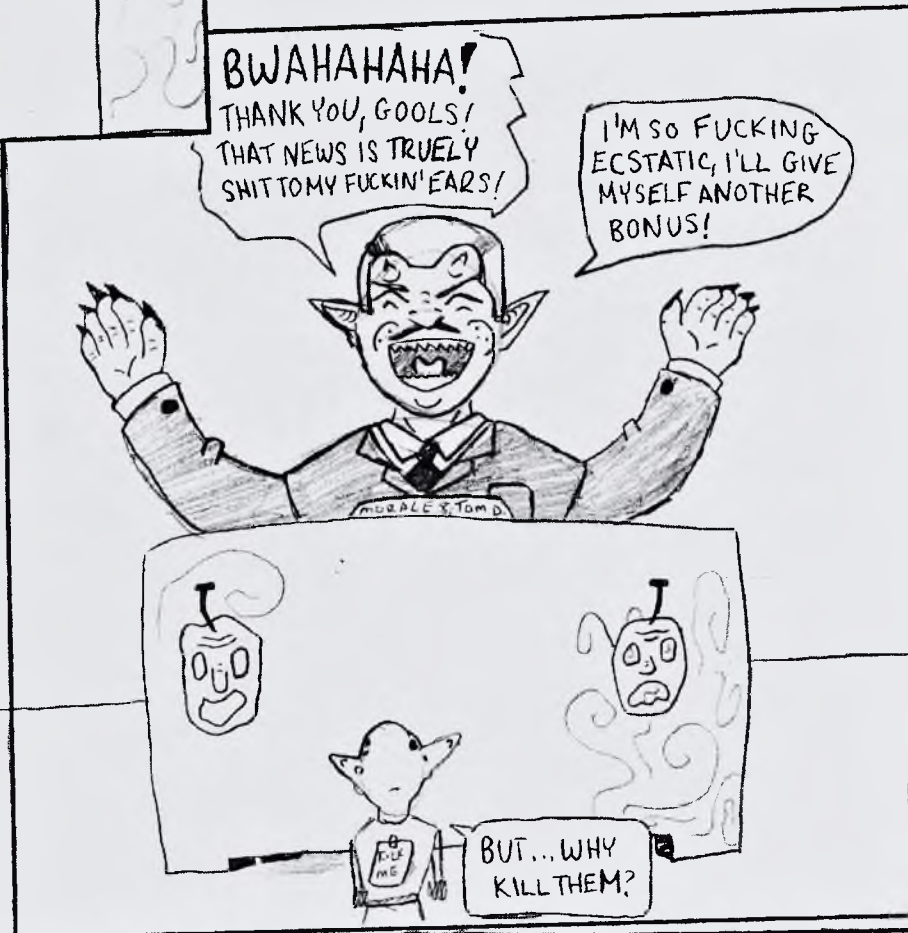 BWAHAHAHA!
THANK YOU, GOOLS!
THAT NEWS IS TRUELY
SHIT TO MY FUCKIN' EARS!
I'M SO FUCKING
ECSTATIC, I'LL GIVE
MYSELF ANOTHER
BONUS!
MORALES, TOM D.
KICK
ME
BUT... WHY
KILL THEM?